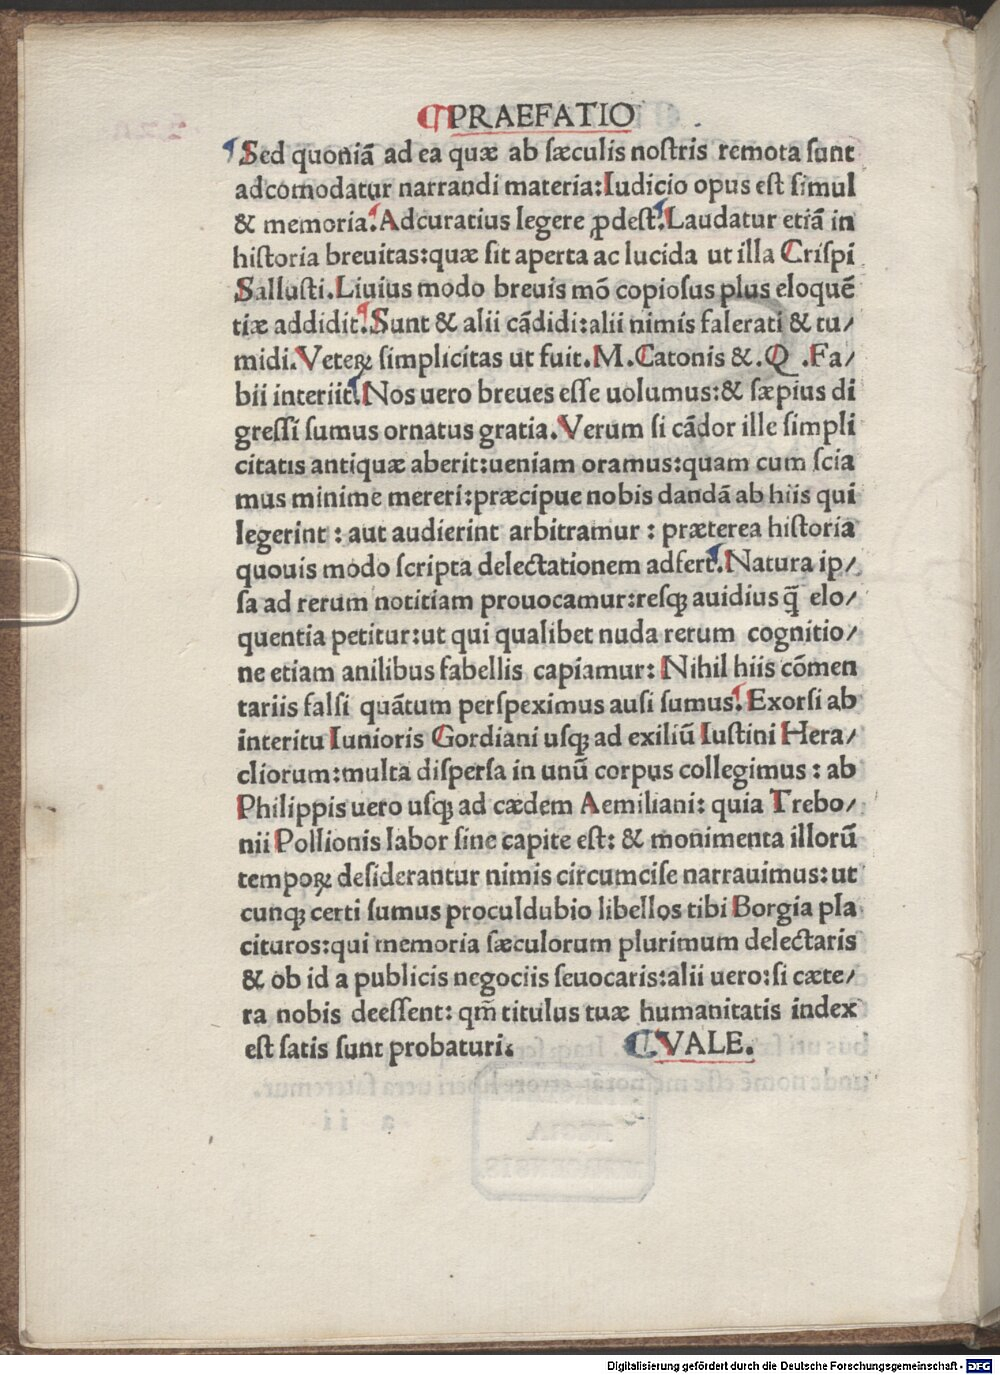 PRAEFATIO
Sed quoniã ad ea quæ ab sæculis nostris remota sunt
adcomodatur narrandi materia: Iudicio opus est simul
& memoria. Adcuratius legere ꝓdest. Laudatur etiã in
historia breuitas: quæ sit aperta ac lucida ut illa Crispi
Sallusti. Liuius modo breuis mõ copiosus plus eloquẽ
tiæ addidit. Sunt & alii cãdidi: alii nimis falerati & tu/
midi. Veteꝝ simplicitas ut fuit. M. Catonis &. Q. Fa/
bii interiit. Nos uero breues esse uolumus: & sæpius di
gressi sumus ornatus gratia. Verum si cãdor ille simpli
citatis antiquæ aberit: ueniam oramus: quam cum scia
mus minime mereri: præcipue nobis dandã ab hiis qui
legerint: aut audierint arbitramur: præterea historia
quouis modo scripta delectationem adfert. Natura ip/
sa ad rerum notitiam prouocamur: resqꝫ auidius q̃ elo/
quentia petitur: ut qui qualibet nuda rerum cognitio/
ne etiam anilibus fabellis capiamur: Nihil hiis cõmen
tariis falsi quãtum perspeximus ausi sumus. Exorsi ab
interitu Iunioris Gordiani usqꝫ ad exiliũ Iustini Hera/
cliorum: multa dispersa in unũ corpus collegimus: ab
Philippis uero usqꝫ ad cædem Aemiliani: quia Trebo/
nii Pollionis labor sine capite est: & monimenta illorũ
tempoꝝ desiderantur nimis circumcise narrauimus: ut
cunqꝫ certi sumus proculdubio libellos tibi Borgia pla
cituros: qui memoria sæculorum plurimum delectaris
& ob id a publicis negociis seuocaris: alii uero: si cæte/
ra nobis deessent: qm̃ titulus tuæ humanitatis index
est satis sunt probaturi. VALE.
Digitalisierung gefördert durch die Deutsche Forschungsgemeinschaft - DFG